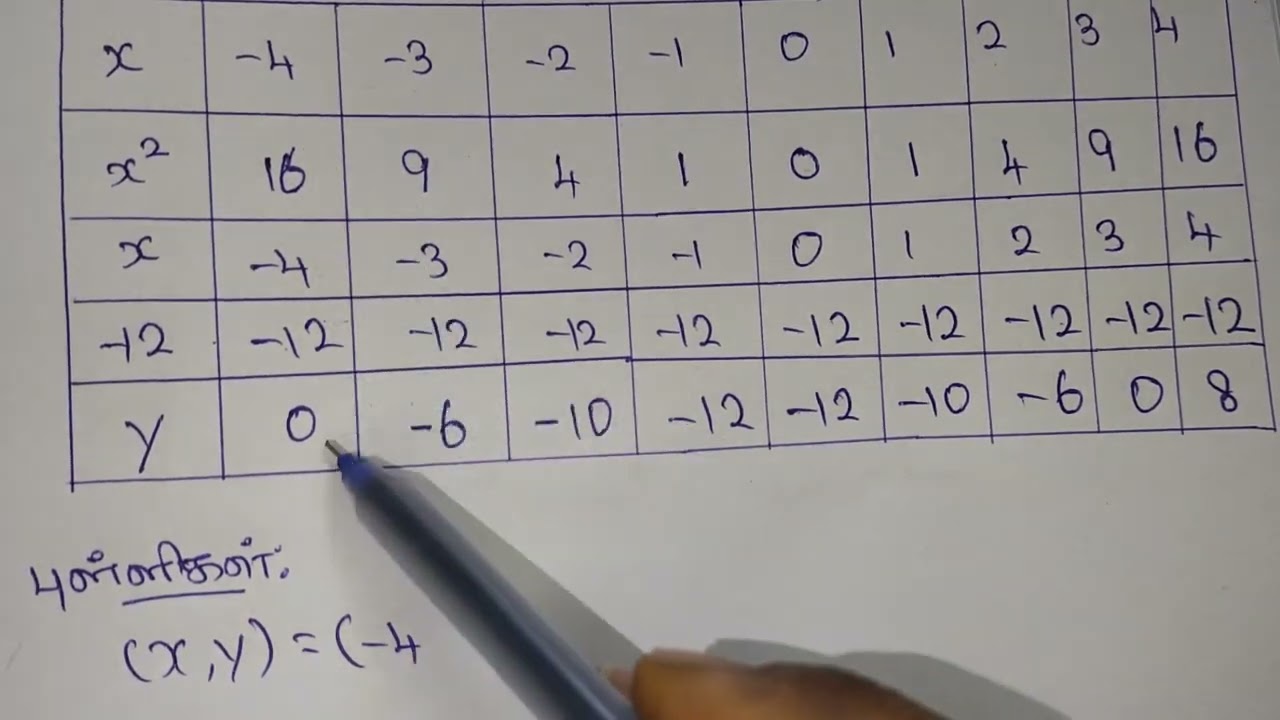 x -4 -3 -2 -1 0 1 2 3 4
x² 16 9 4 1 0 1 4 9 16
x -4 -3 -2 -1 0 1 2 3 4
-12 -12 -12 -12 -12 -12 -12 -12 -12 -12
y 0 -6 -10 -12 -12 -10 -6 0 8
புள்ளிகள்:
(x,y) = (-4